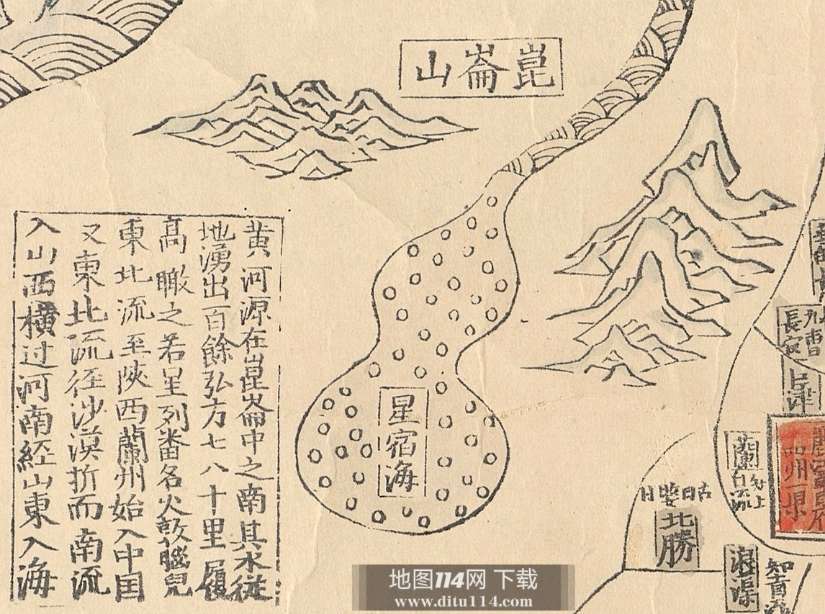 崑崙山
黄河源在崑崙中之南其水從
地湧出百餘弘方七八十里履
高瞰之若星列番名火敦腦兒
東北流至陝西蘭州始入中国
又東北流径沙漠折而南流
入山西横过河南經山東入海
星宿海
北勝
浪渠
地图114网 下载
www.ditu114.com